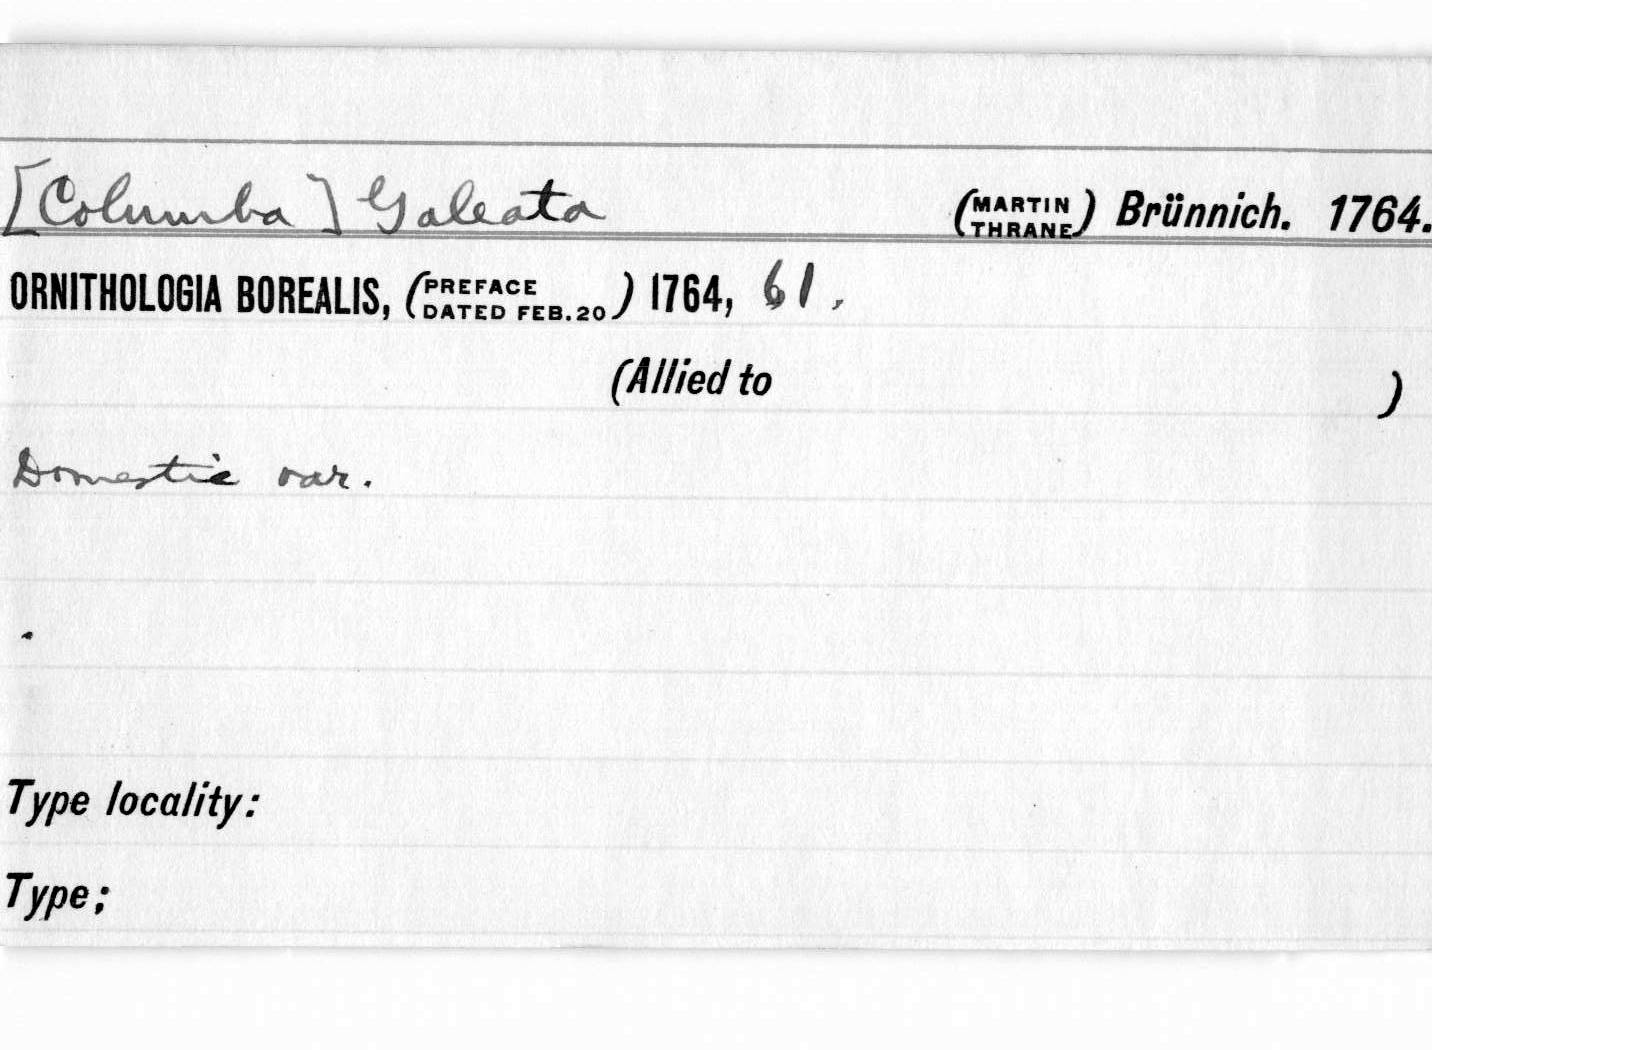 [Columba] Galeata (MARTIN THRANE) Brünnich. 1764.
ORNITHOLOGIA BOREALIS, (PREFACE DATED FEB. 20) 1764, 61.
(Allied to )
Domestic var.
Type locality:
Type;